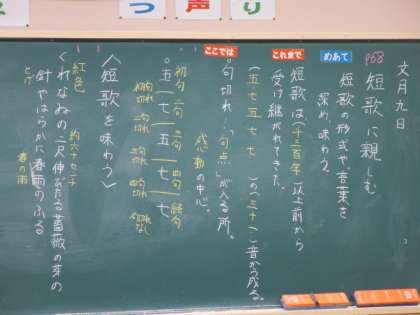 つ 声 り
文月九日
P68 短歌に親しむ
めあて
短歌の形式や言葉を
深め、味わう。
これまで
短歌は(千三百年)以上前から
受け継がれてきた。
(五七五七七)の(三十一)音から成る。
ここでは
句切れ…「句点」が入る所。
感動の中心。
初句 二句 三句 四句 結句
五/七/五/七/七
初句切れ 二句切れ 三句切れ 四句切れ 句切れなし
〈短歌を味わう〉
紅色 約六十センチ
くれなゐの二尺伸びたる薔薇の芽の
針やはらかに春雨のふる
とげ 春の雨